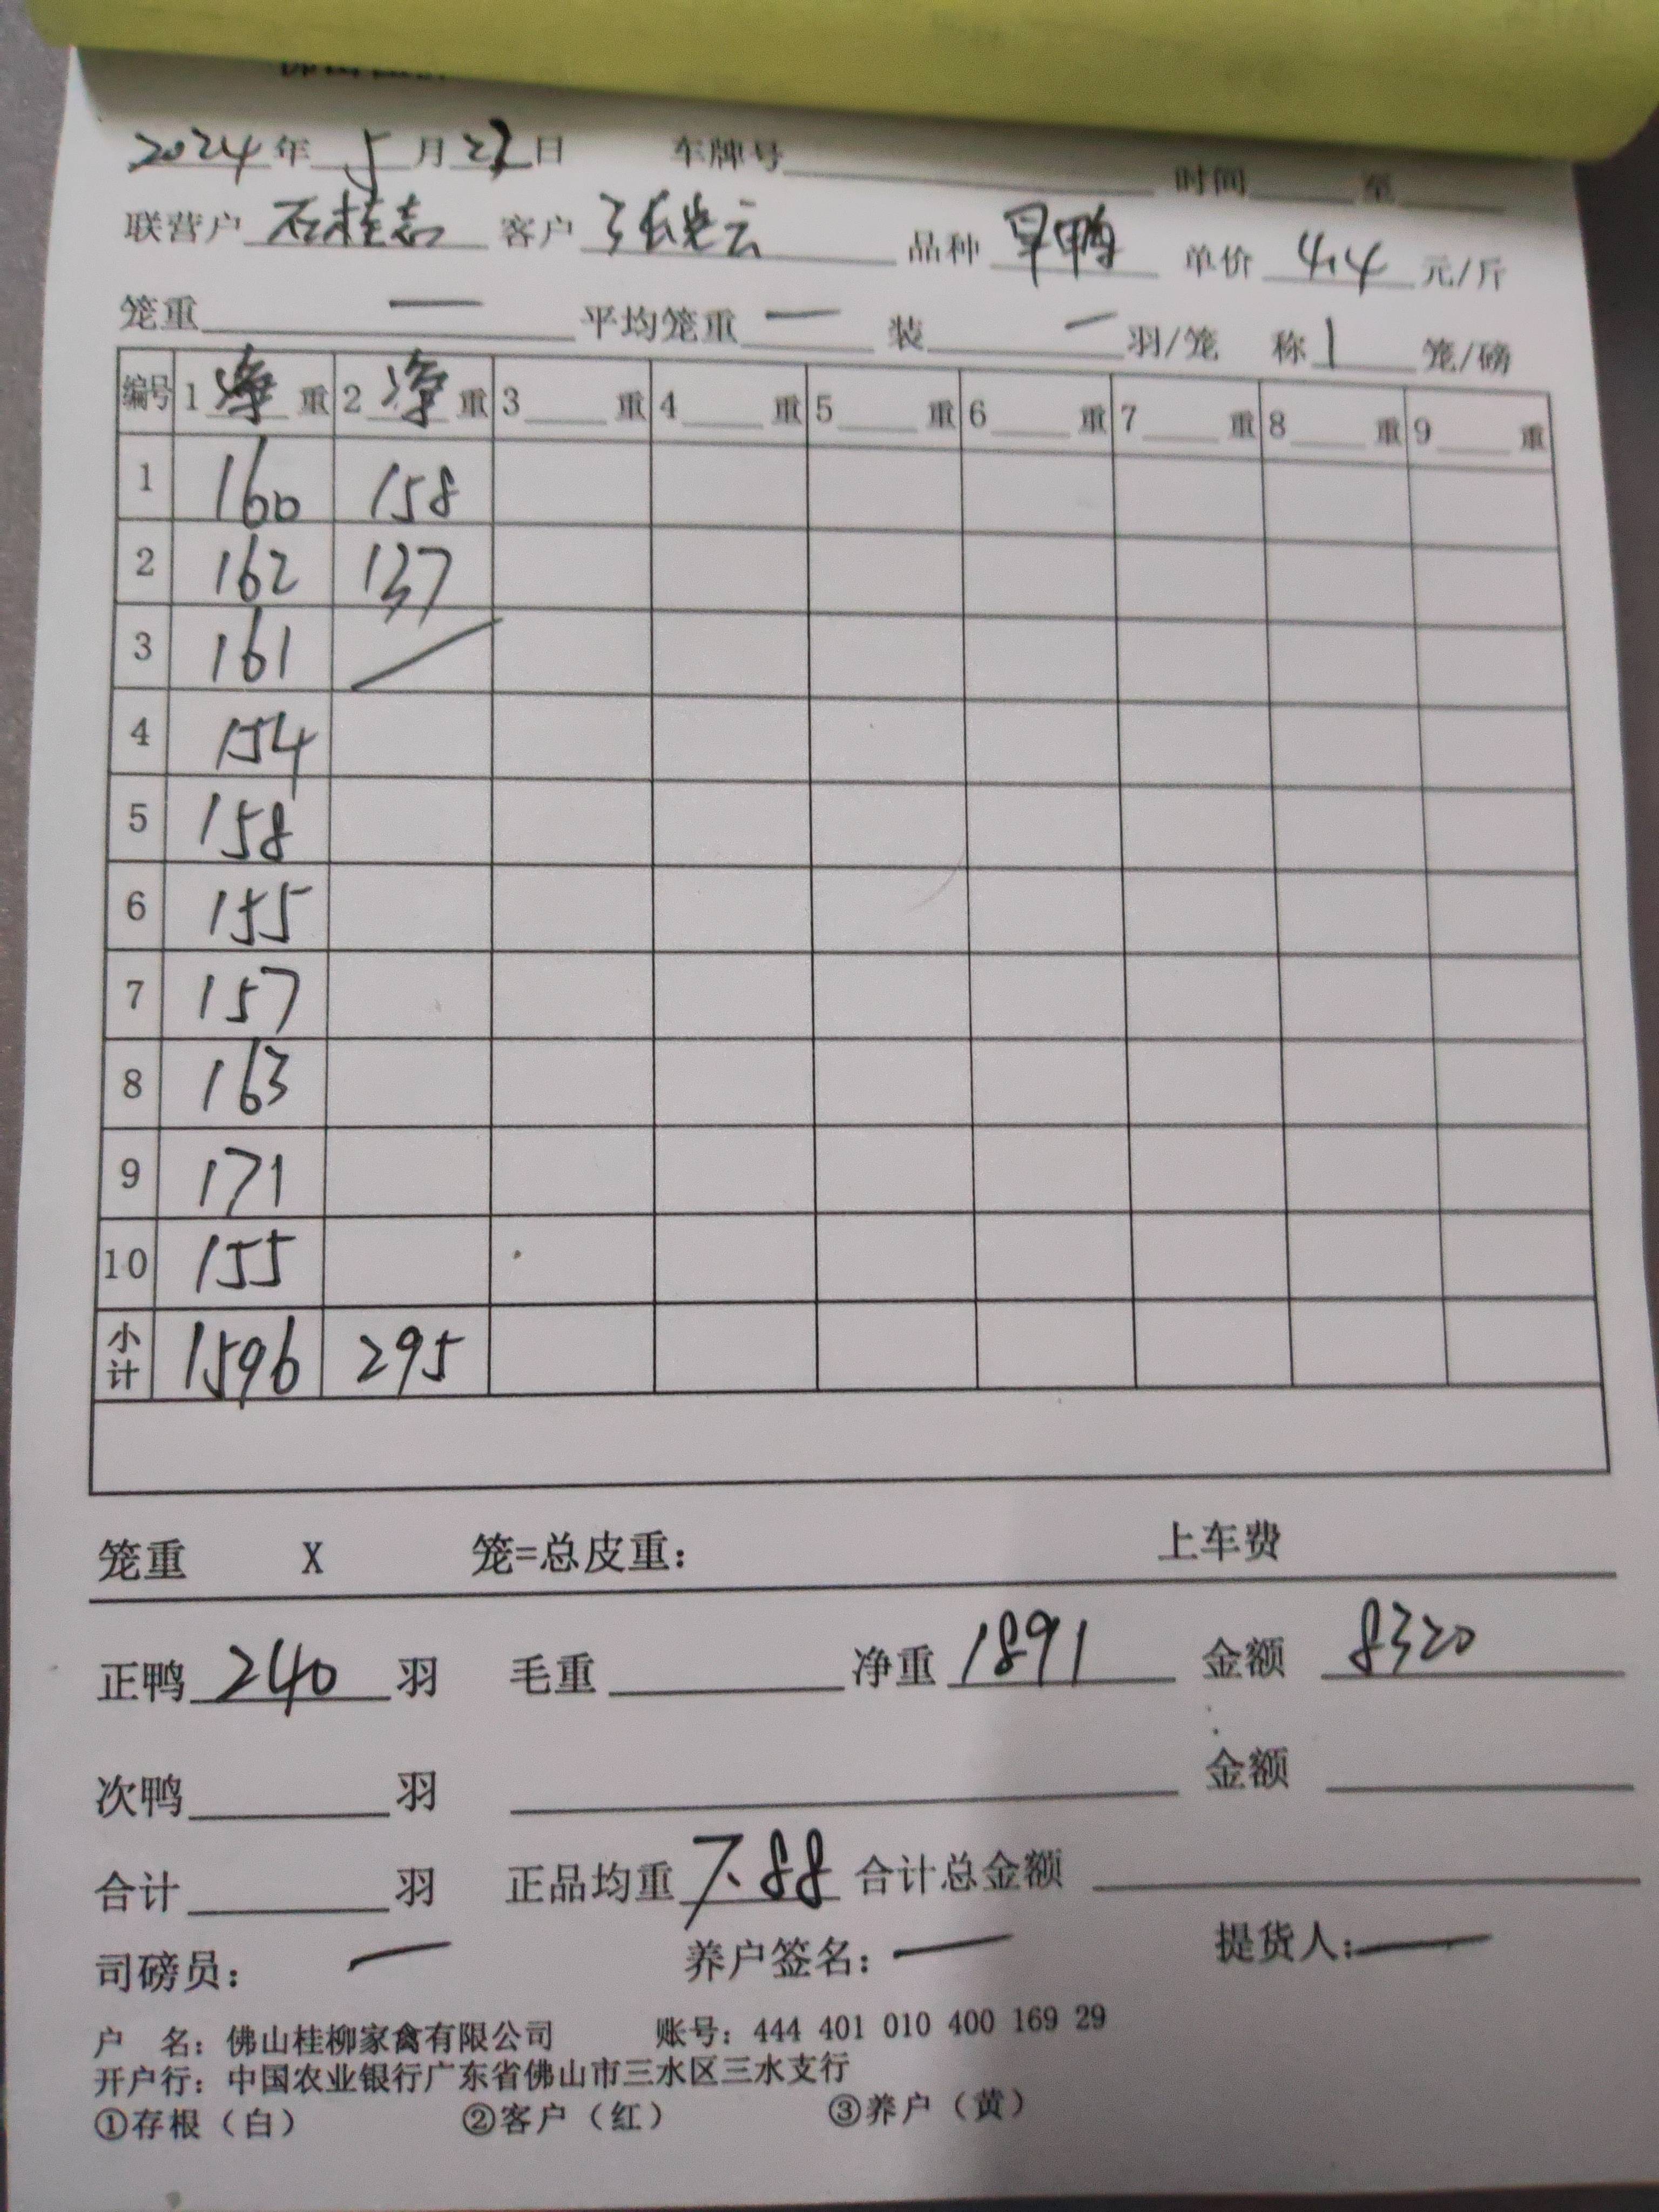 2024年 5月 23日 车牌号 时间 至
联营户 石桂志 客户 张光云 品种 旱鸭 单价 4.4 元/斤
笼重 — 平均笼重 — 装 — 羽/笼 称 1 笼/磅
编号 1 净 重 2 净 重 3 重 4 重 5 重 6 重 7 重 8 重 9 重
1 160 158
2 162 137
3 161 /
4 154
5 158
6 155
7 157
8 163
9 171
10 155
小计 1596 295
笼重 X 笼=总皮重: 上车费
正鸭 240 羽 毛重 净重 1891 金额 8320
次鸭 羽 金额
合计 羽 正品均重 7.88 合计总金额
司磅员: — 养户签名: — 提货人: —
户 名: 佛山桂柳家禽有限公司 账号: 444 401 010 400 169 29
开户行: 中国农业银行广东省佛山市三水区三水支行
①存根（白） ②客户（红） ③养户（黄）